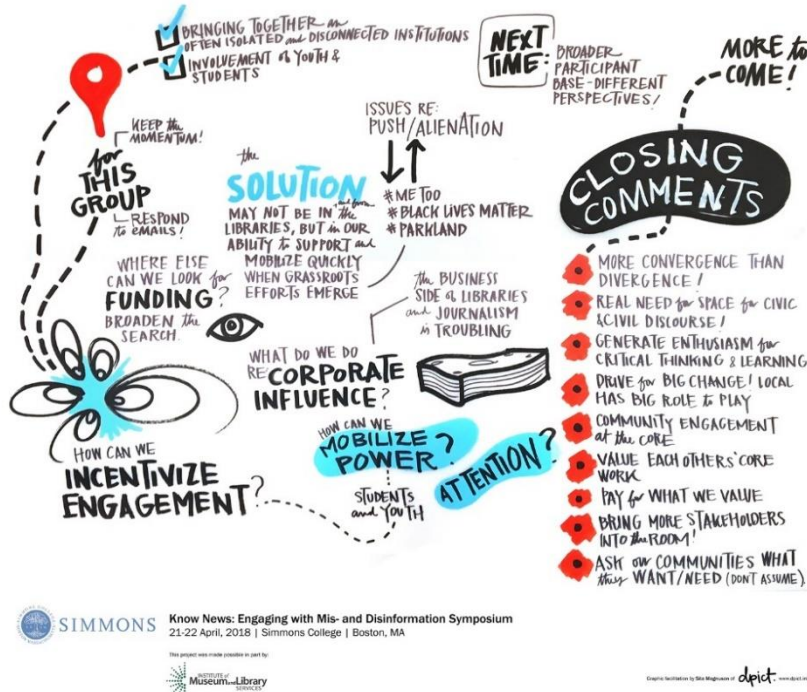 BRINGING TOGETHER an
OFTEN ISOLATED and DISCONNECTED INSTITUTIONS
INVOLVEMENT of YOUTH &
STUDENTS
NEXT
TIME:
BROADER
PARTICIPANT
BASE-DIFFERENT
PERSPECTIVES!
MORE to
COME!
KEEP the
MOMENTUM!
for
THIS
GROUP
RESPOND
to EMAILS!
the
SOLUTION
MAY NOT BE IN and from the
LIBRARIES, BUT in OUR
ABILITY to SUPPORT and
MOBILIZE QUICKLY
WHEN GRASSROOTS
EFFORTS EMERGE
ISSUES RE:
PUSH/ALIENATION
#ME TOO
#BLACK LIVES MATTER
#PARKLAND
WHERE ELSE
CAN WE LOOK for
FUNDING?
BROADEN the
SEARCH.
the BUSINESS
SIDE of LIBRARIES
and JOURNALISM
is TROUBLING
WHAT DO WE DO
RE: CORPORATE
INFLUENCE?
HOW CAN WE
INCENTIVIZE
ENGAGEMENT?
HOW CAN WE
MOBILIZE
POWER?
ATTENTION?
STUDENTS
and YOUTH
CLOSING
COMMENTS
MORE CONVERGENCE THAN
DIVERGENCE!
REAL NEED for SPACE for CIVIC
& CIVIL DISCOURSE!
GENERATE ENTHUSIASM for
CRITICAL THINKING & LEARNING
DRIVE for BIG CHANGE! LOCAL
HAS BIG ROLE to PLAY
COMMUNITY ENGAGEMENT
at the CORE
VALUE EACH OTHERS' CORE
WORK
PAY for WHAT WE VALUE
BRING MORE STAKEHOLDERS
INTO the ROOM!
ASK our COMMUNITIES WHAT
they WANT/NEED (DON'T ASSUME).
SIMMONS
Know News: Engaging with Mis- and Disinformation Symposium
21-22 April, 2018 | Simmons College | Boston, MA
This project was made possible in part by:
INSTITUTE of
Museum and Library
SERVICES
Graphic facilitation by Sita Magnuson of dpict.